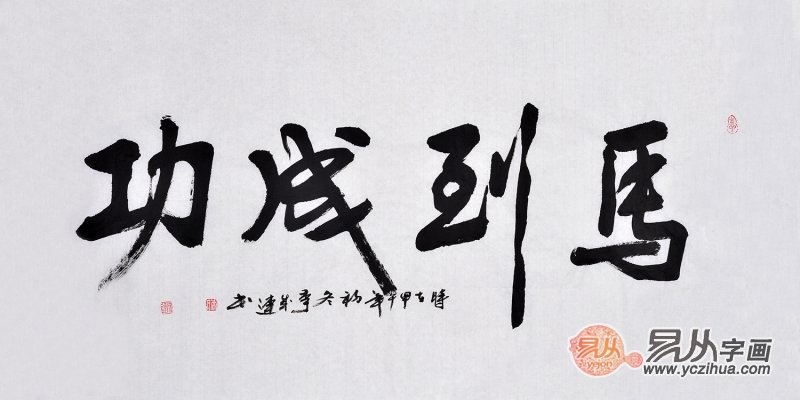 馬到成功
時在甲午年初冬李成連书
易从
易从字画
www.yczihua.com